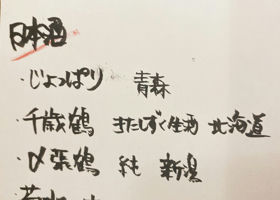 日本酒
・じょっぱり 青森
・千歳鶴 きたしずく生酒 北海道
・〆張鶴 純 新潟